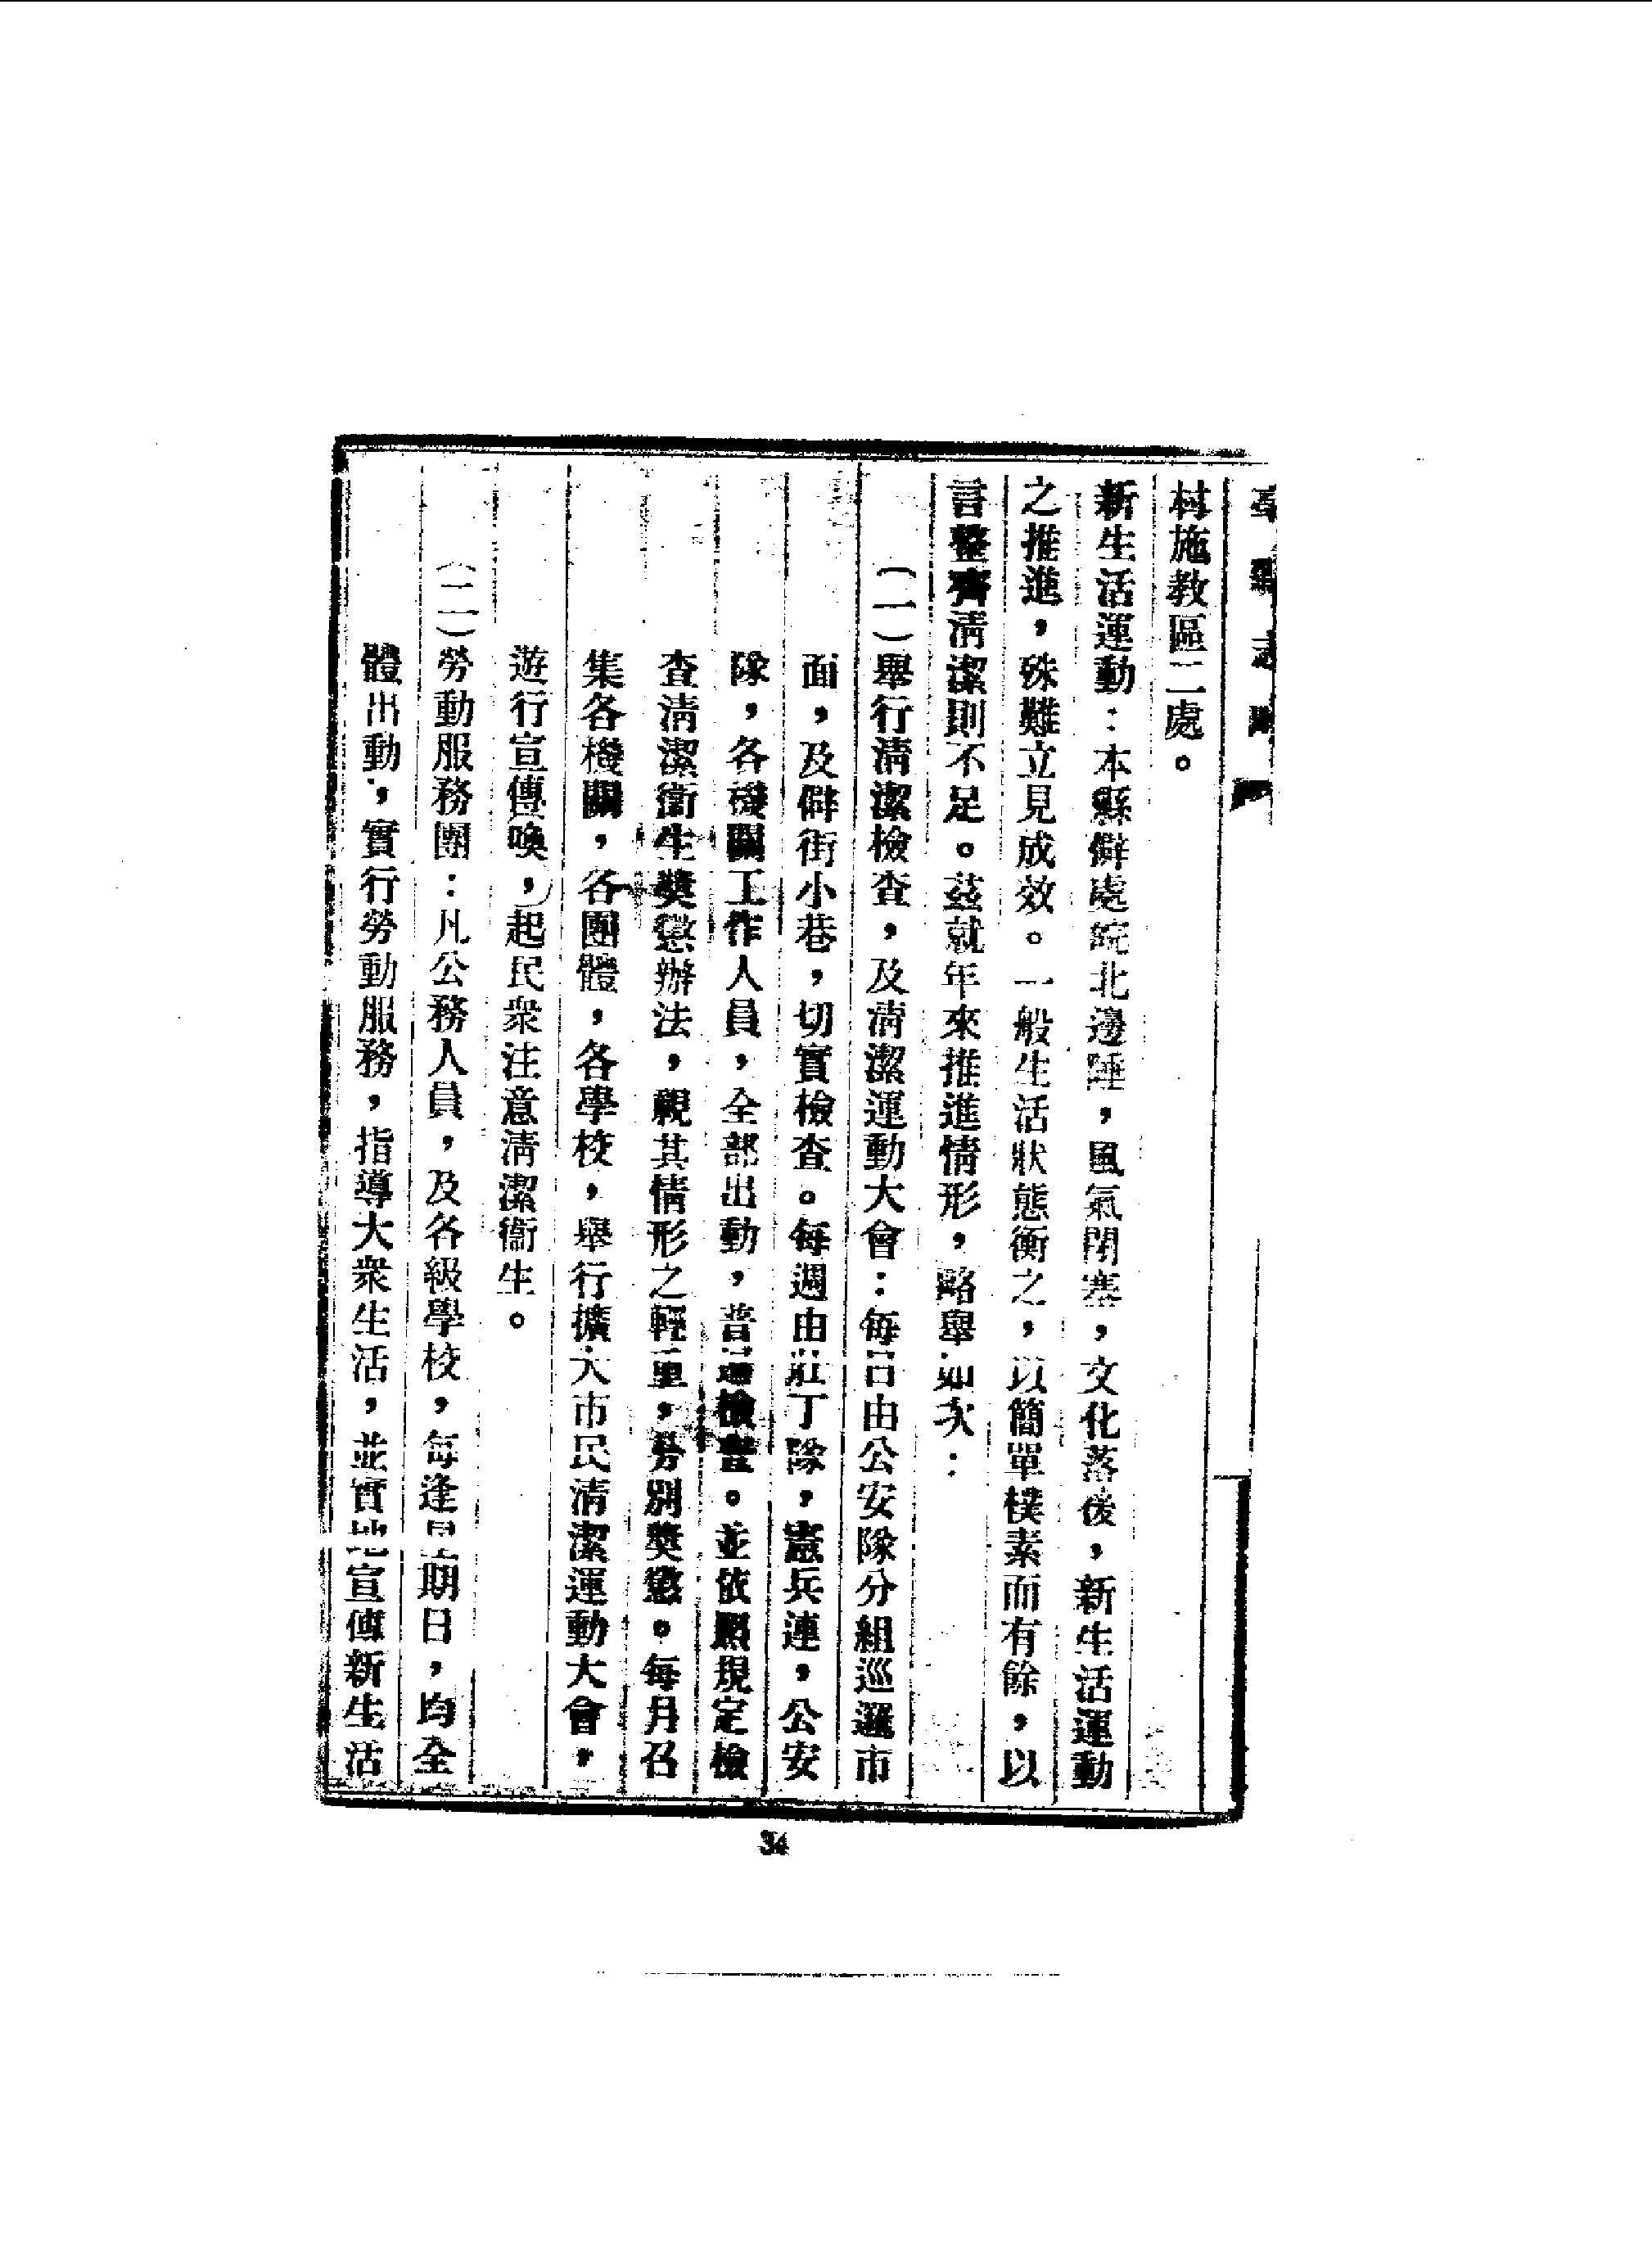 亳縣志略
村施教區二處。
新生活運動：本縣僻處皖北邊陲，風氣閉塞，文化落後，新生活運動
之推進，殊難立見成效。一般生活狀態衡之，以簡單樸素而有餘，以
言整齊清潔則不足。茲就年來推進情形，略舉如次：
（一）舉行清潔檢查，及清潔運動大會：每日由公安隊分組巡邏市
面，及僻街小巷，切實檢查。每週由壯丁隊，憲兵連，公安
隊，各機關工作人員，全部出動，普遍檢查。並依照規定檢
查清潔衛生獎懲辦法，視其情形之輕重，分別獎懲。每月召
集各機關，各團體，各學校，舉行擴大市民清潔運動大會，
遊行宣傳喚，起民衆注意清潔衛生。
（二）勞動服務團：凡公務人員，及各級學校，每逢星期日，均全
體出動，實行勞動服務，指導大衆生活，並實地宣傳新生活
34